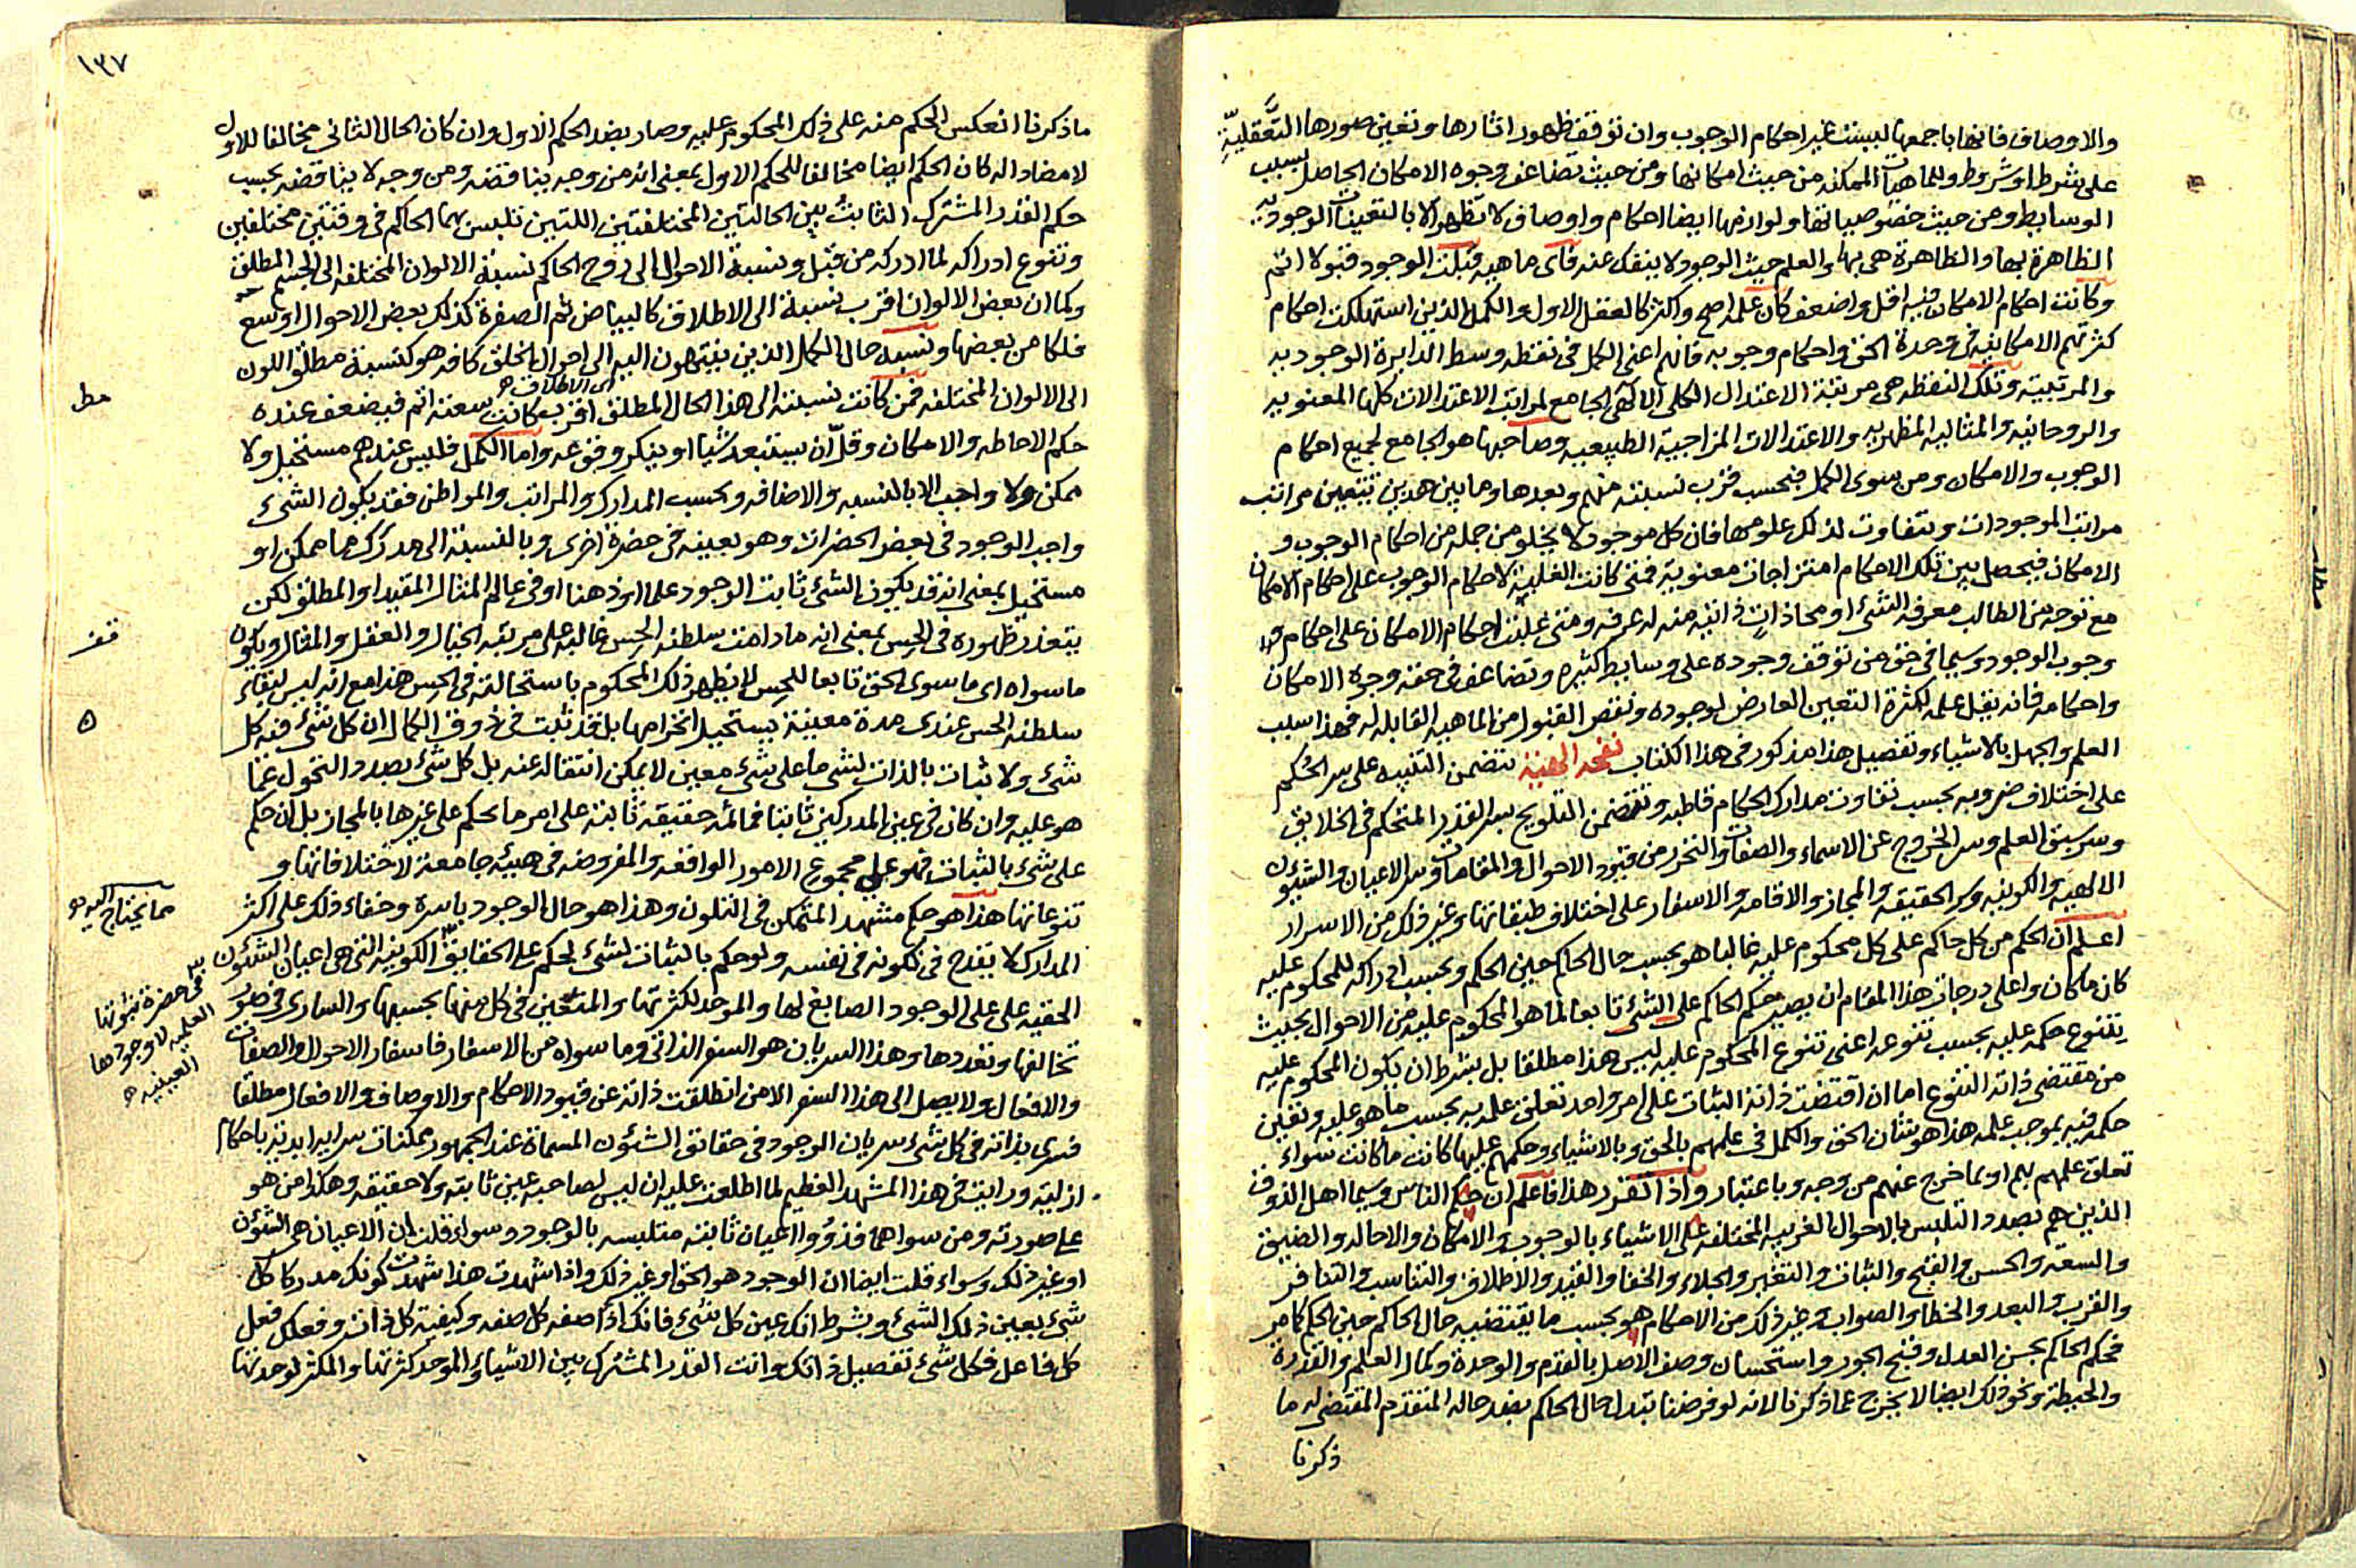 والاوصاف فانها باجمعها ليست غير احكام الوجوب وان توقف ظهور اثارها وتعين صورها التعقلية
على شرط او شروط وللماهيات الممكنة من حيث امكانها ومن حيث تضاعف وجوه الامكان الحاصل بسبب
الوسايط ومن حيث خصوصياتها ولوازمها ايضا احكام واوصاف لا تظهر الا بالتعينات الوجودية
الظاهرة بها والظاهرة هي بها والعلم حيث الوجود لا ينفك عنه فاى ماهية قبلت الوجود قبولا اتم
وكانت احكام الامكان فيه اقل واضعف كان علمه اصح واكثر كالعقل الاول والكمل الذين استهلكت احكام
كثرتهم الامكانية في وحدة الحق واحكام وجوبه فانهم اعنى الكمل في نقطة وسط الدايرة الوجودية
والمرتبية وتلك النقطة هي مرتبة الاعتدال الكلى الالهى الجامع لمراتب الاعتدالات كلها المعنوية
والروحانية والمثالية المظهرية والاعتدالات المزاجية الطبيعية وصاحبها هو الجامع لجميع احكام
الوجوب والامكان ومن سوى الكمل فبحسب قرب نسبته منهم وبعدها وما بين هذين تتعين مراتب
مراتب الموجودات وتتفاوت لذلك علومها فان كل موجود لا يخلو من جملة من احكام الوجوب و
الامكان فيحصل بين تلك الاحكام امتزاجات معنوية فمتى كانت الغلبة لاحكام الوجوب على احكام الامكان
مع توجه من الطالب معرفة الشئ او محاذات ذاتية منه له عرفه ومتى غلبت احكام الامكان على احكام
وجوب الوجود وسيما في حق من توقف وجوده على وسايط كثيرة وتضاعف في حقه وجوه الامكان
واحكامه فانه يقل علمه لكثرة التعين العارض لوجوده ونقص القبول من الماهية القابلة له فهذا سبب
العلم والجهل بالاشياء وتفصيل هذا مذكور في هذا الكتاب نفحة الهية تتضمن التنبيه على سر الحكم
على اختلاف ضروبه بحسب تفاوت مدارك الحكام قاطبه وتتضمن التلويح بسر القدر المتحكم في الخلايق
وسر سبق العلم وسر الخروج عن الاسماء والصفات والتحرر من قيود الاحوال والمقامات وسر الاعيان والشئون
الالهية والكونية وسر الحقيقة والمجاز والاقامة والاسفار على اختلاف طبقاتها وغير ذلك من الاسرار
اعلم ان الحكم من كل حاكم على كل محكوم عليه غالبا هو بحسب حال الحاكم حين الحكم وبحسب ادراكه للمحكوم عليه
كان ما كان واعلى درجات هذا المقام ان يصير حكم الحاكم على الشئ تابعا لما هو المحكوم عليه من الاحوال بحيث
يتنوع حكمه عليه بحسب تنوعه اعنى تنوع المحكوم عليه ليس هذا مطلقا بل بشرط ان يكون المحكوم عليه
من مقتضى ذاته التنوع اما ان اقتضت ذاته الثبات على امر واحد تعلق علمه به بحسب ما هو عليه وتعين
حكمه فيه بموجب علمه هذا هو شان الحق والكمل في علمهم بالحق وبالاشياء وحكمهم عليها كانت ما كانت سواء
تعلق علمهم بهم او بما خرج عنهم من وجه وباعتبار واذا تقرر هذا فاعلم ان حكم الناس وسيما اهل الذوق
الذين هم بصدد التلبس بالاحوال الغريبة المختلفة على الاشياء بالوجوب والامكان والاحالة والضيق
والسعة والحسن والقبح والثبات والتغير والجلاء والخفا والقيد والاطلاق والتناسب والتنافر
والقرب والبعد والخطا والصواب وغير ذلك من الاحكام هو بحسب ما يقتضيه حال الحاكم حين الحكم كامر
فحكم الحاكم بحسن العدل وقبح الجور واستحسان وصف الاصل بالقدم والوحدة وكمال العلم والقدرة
والحيطة ونحو ذلك ايضا لا يخرج عما ذكرنا لانه لو فرضنا تبدل حال الحاكم بضد حاله المتقدم المقتضى له ما
ذكرنا
١٣٧
ما ذكرنا انعكس الحكم منه على ذلك المحكوم عليه وصار بضد الحكم الاول وان كان الحال الثانى مخالفا للاول
لا مضادا له كان الحكم ايضا مخالفا للحكم الاول بمعنى انه من وجه يناقضه ومن وجه لا يناقضه بحسب
حكم القدر المشترك الثابت بين الحالتين المختلفتين اللتين تلبس بهما الحاكم في وقتين مختلفين
وتنوع ادراكه لما ادركه من قبل ونسبة الاحوال الى روح الحاكم نسبة الالوان المختلفة الى الجسم المطلق
وكما ان بعض الالوان اقرب نسبة الى الاطلاق كالبياض ثم الصفرة كذلك بعض الاحوال اوسع
فلكا من بعضها ونسبة حال الكمل الذين ينتهون اليه الى احوال الخلق كافة هو كنسبة مطلق اللون
الى الالوان المختلفة فمن كانت نسبته الى هذا الحال المطلق اقرب كانت سعته اتم فيضعف عنده
اى الاطلاق
مط
حكم الاحاطة والامكان وقل ان يستبعد شيئا او ينكر وقوعه واما الكمل فليس عندهم مستحيل ولا
ممكن ولا واجب الا بالنسبة والاضافة وبحسب المدارك والمراتب والمواطن فقد يكون الشئ
واجب الوجود في بعض الحضرات وهو بعينه في حضرة اخرى وبالنسبة الى مدرك ما ممكن او
مستحيل بمعنى انه قد يكون الشئ ثابت الوجود علما او ذهنا او في عالم المثال المقيد او المطلق لكن
يتعذر ظهوره في الحس بمعنى انه ما دامت سلطنة الحس غالبة على مرتبة الخيال والعقل والمثال ويكون
ما سواه اى ما سوى الحق تابعا للحس لا يظهر ذلك المحكوم باستحالته في الحس هذا مع انه ليس لبقاء
سلطنة الحس عندى مدة معينة يستحيل انخرامها بل قد ثبت في ذوق الكمال ان كل شئ فيه كل
شئ ولا ثبات بالذات لشئ ما على شئ معين لا يمكن انتقاله عنه بل كل شئ بصدد التحول عما
هو عليه وان كان في عين المدركين ثابتا فما ثمه حقيقة ثابتة على امر ما يحكم على غيرها بالمجاز بل ان حكم
على شئ بالثبات فهو على مجموع الامور الواقعة والمفروضة في هيئة جامعة لاختلافاتها و
تنوعاتها هذا هو حكم مشهد المتمكن في التلون وهذا هو حال الوجود باسره وخفاء ذلك على اكثر
مما يحتاج اليه
المدارك لا يقدح في كونه في نفسه ولو حكم بالثبات لشئ لحكم على الحقايق الكونية التى هي اعيان الشئون
في حضرة ثبوتها
العلمية لا وجودها
العينية
الحقية على على الوجود الصابغ لها والموحد لكثرتها والمتعين في كل منها بحسبها والسارى في صور
تخالفها وتعددها وهذا السريان هو السفر الذاتى وما سواه من الاسفار فاسفار الاحوال والصفات
والافعال ولا يصل الى هذا السفر الا من انطلقت ذاته عن قيود الاحكام والاوصاف والافعال مطلقا
فسرى بذاته في كل شئ سريان الوجود في حقائق الشئون المسماة عند الجمهور ممكنات سراية ابدية باحكام
ازلية ورايت في هذا المشهد العظيم لما اطلعت عليه ان ليس لصاحبه عين ثابتة ولا حقيقة وهكذا من هو
على صورته ومن سواهما فذووا اعيان ثابتة متلبسة بالوجود وسواء قلت ان الاعيان هي الشئون
او غير ذلك وسواء قلت ايضا ان الوجود هو الحق او غير ذلك واذا شهدت هذا شهدت كونك مدركا كل
شئ بعين ذلك الشئ وبشرط انك عين كل شئ فانك اذا صفة كل صفة وكيفية كل ذات وفعلك فعل
كل فاعل فكل شئ تفصيل ذاتك وانت القدر المشترك بين الاشياء والموحد كثرتها والمكثر لوحدتها